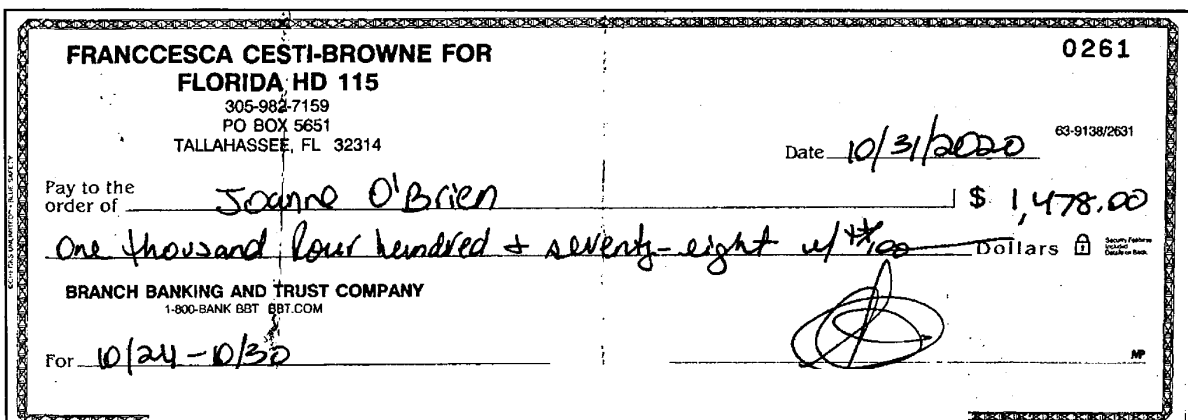 FRANCCESCA CESTI-BROWNE FOR
FLORIDA HD 115
305-982-7159
PO BOX 5651
TALLAHASSEE, FL 32314
0261
63-9138/2631
Date 10/31/2020
Pay to the
order of Joanne O'Brien $ 1,478.00
One thousand four hundred & seventy-eight w/ Dollars
Security Features
Included
Details on Back
BRANCH BANKING AND TRUST COMPANY
1-800-BANK BBT BBT.COM
For 10/24-10/30
MP